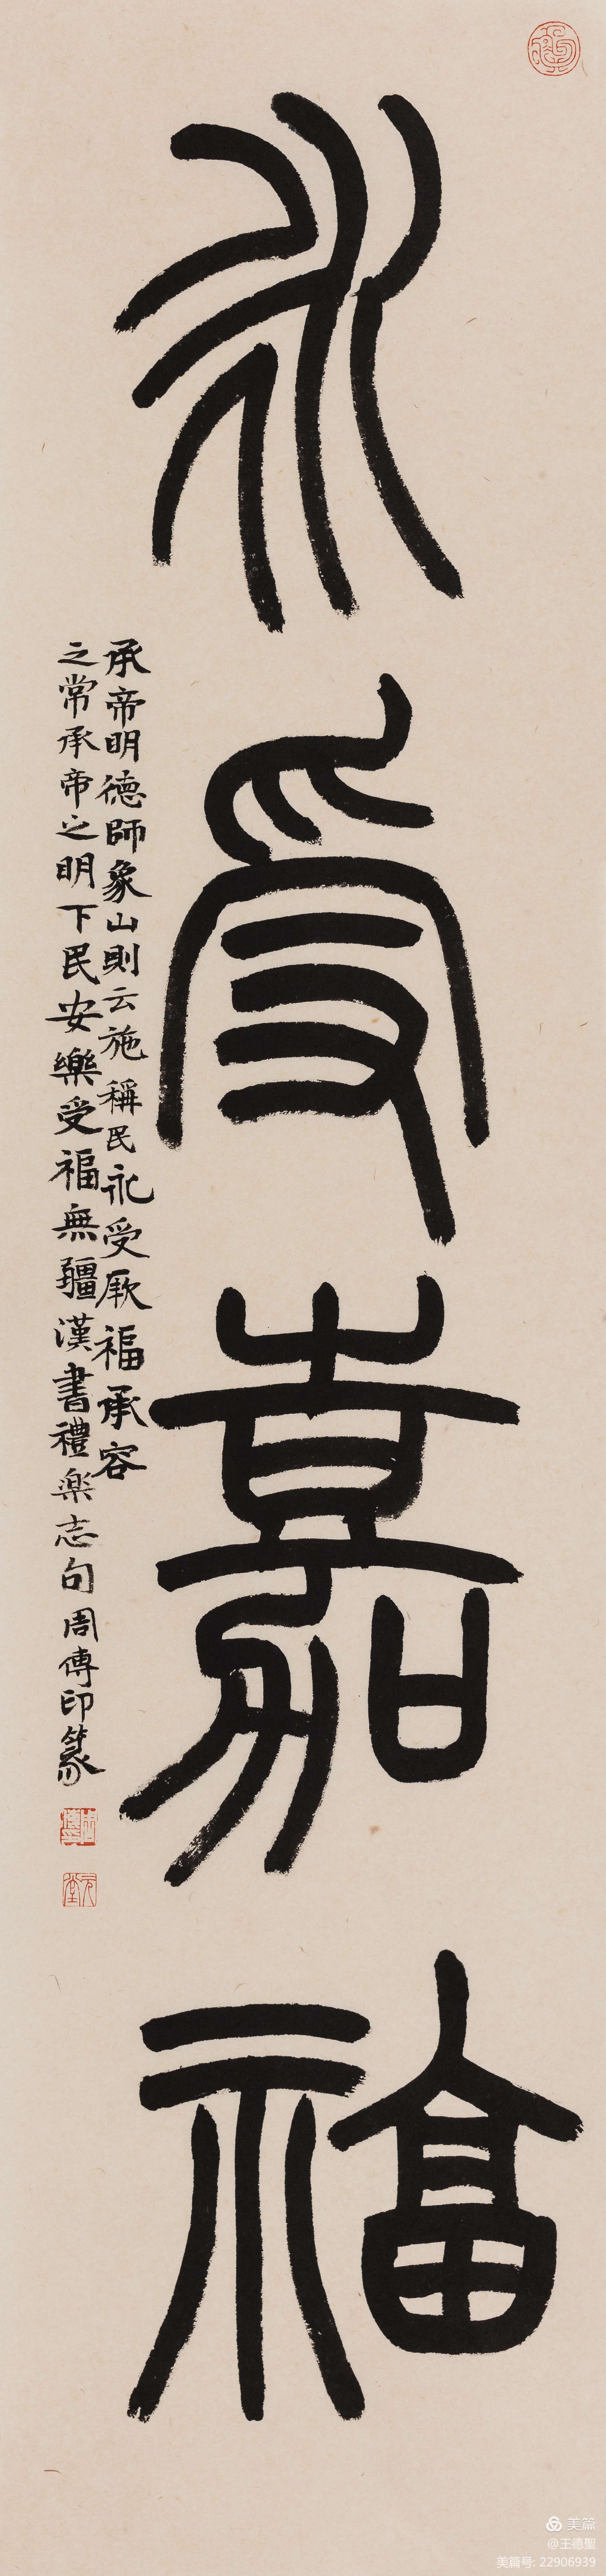 永受嘉福
承帝明德師象山則云施稱民永受厥福承容
之常承帝之明下民安樂受福無疆漢書禮樂志句周傳印篆
美篇
@王德聖
美篇号: 22906939